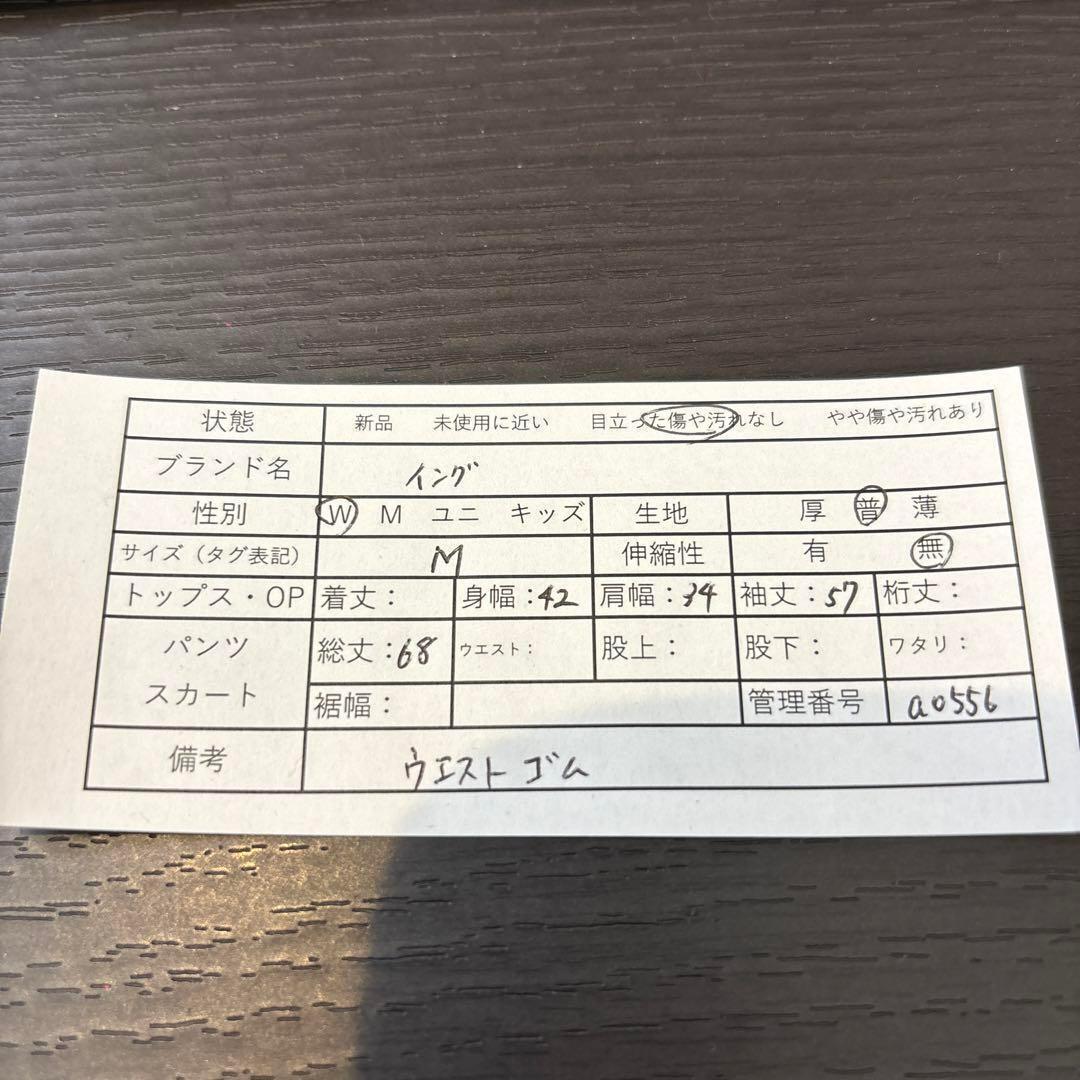 状態 新品 未使用に近い 目立った傷や汚れなし やや傷や汚れあり
ブランド名 イング
性別 W M ユニ キッズ 生地 厚 普 薄
サイズ（タグ表記） M 伸縮性 有 無
トップス・OP 着丈： 身幅：42 肩幅：34 袖丈：57 裄丈：
パンツ 総丈：68 ウエスト： 股上： 股下： ワタリ：
スカート 裾幅： 管理番号 a0556
備考 ウエスト ゴム